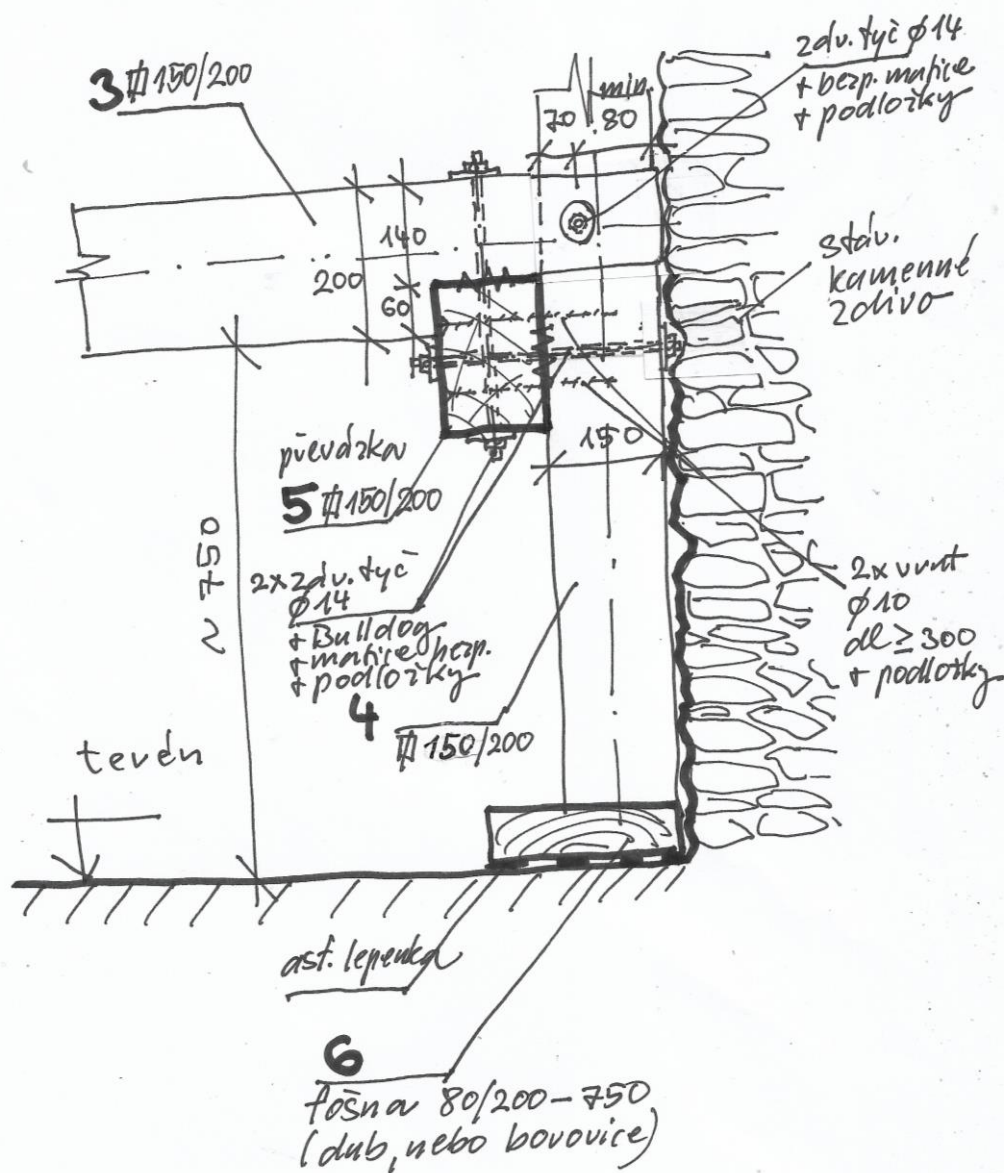 3 ⌷ 150/200
zdv. tyč ϕ14
+ bezp. matice
+ podložky
min.
70 80
140
200
60
stáv.
kamenné
zdivo
150
převázka
5 ⌷ 150/200
~ 750
2x zdv. tyč
ϕ14
+ Bulldog
+ matice bezp.
+ podložky
2x vrut
ϕ10
dl ≥ 300
+ podložky
4
⌷ 150/200
terén
asf. lepenka
6
fošna 80/200-750
(dub, nebo borovice)